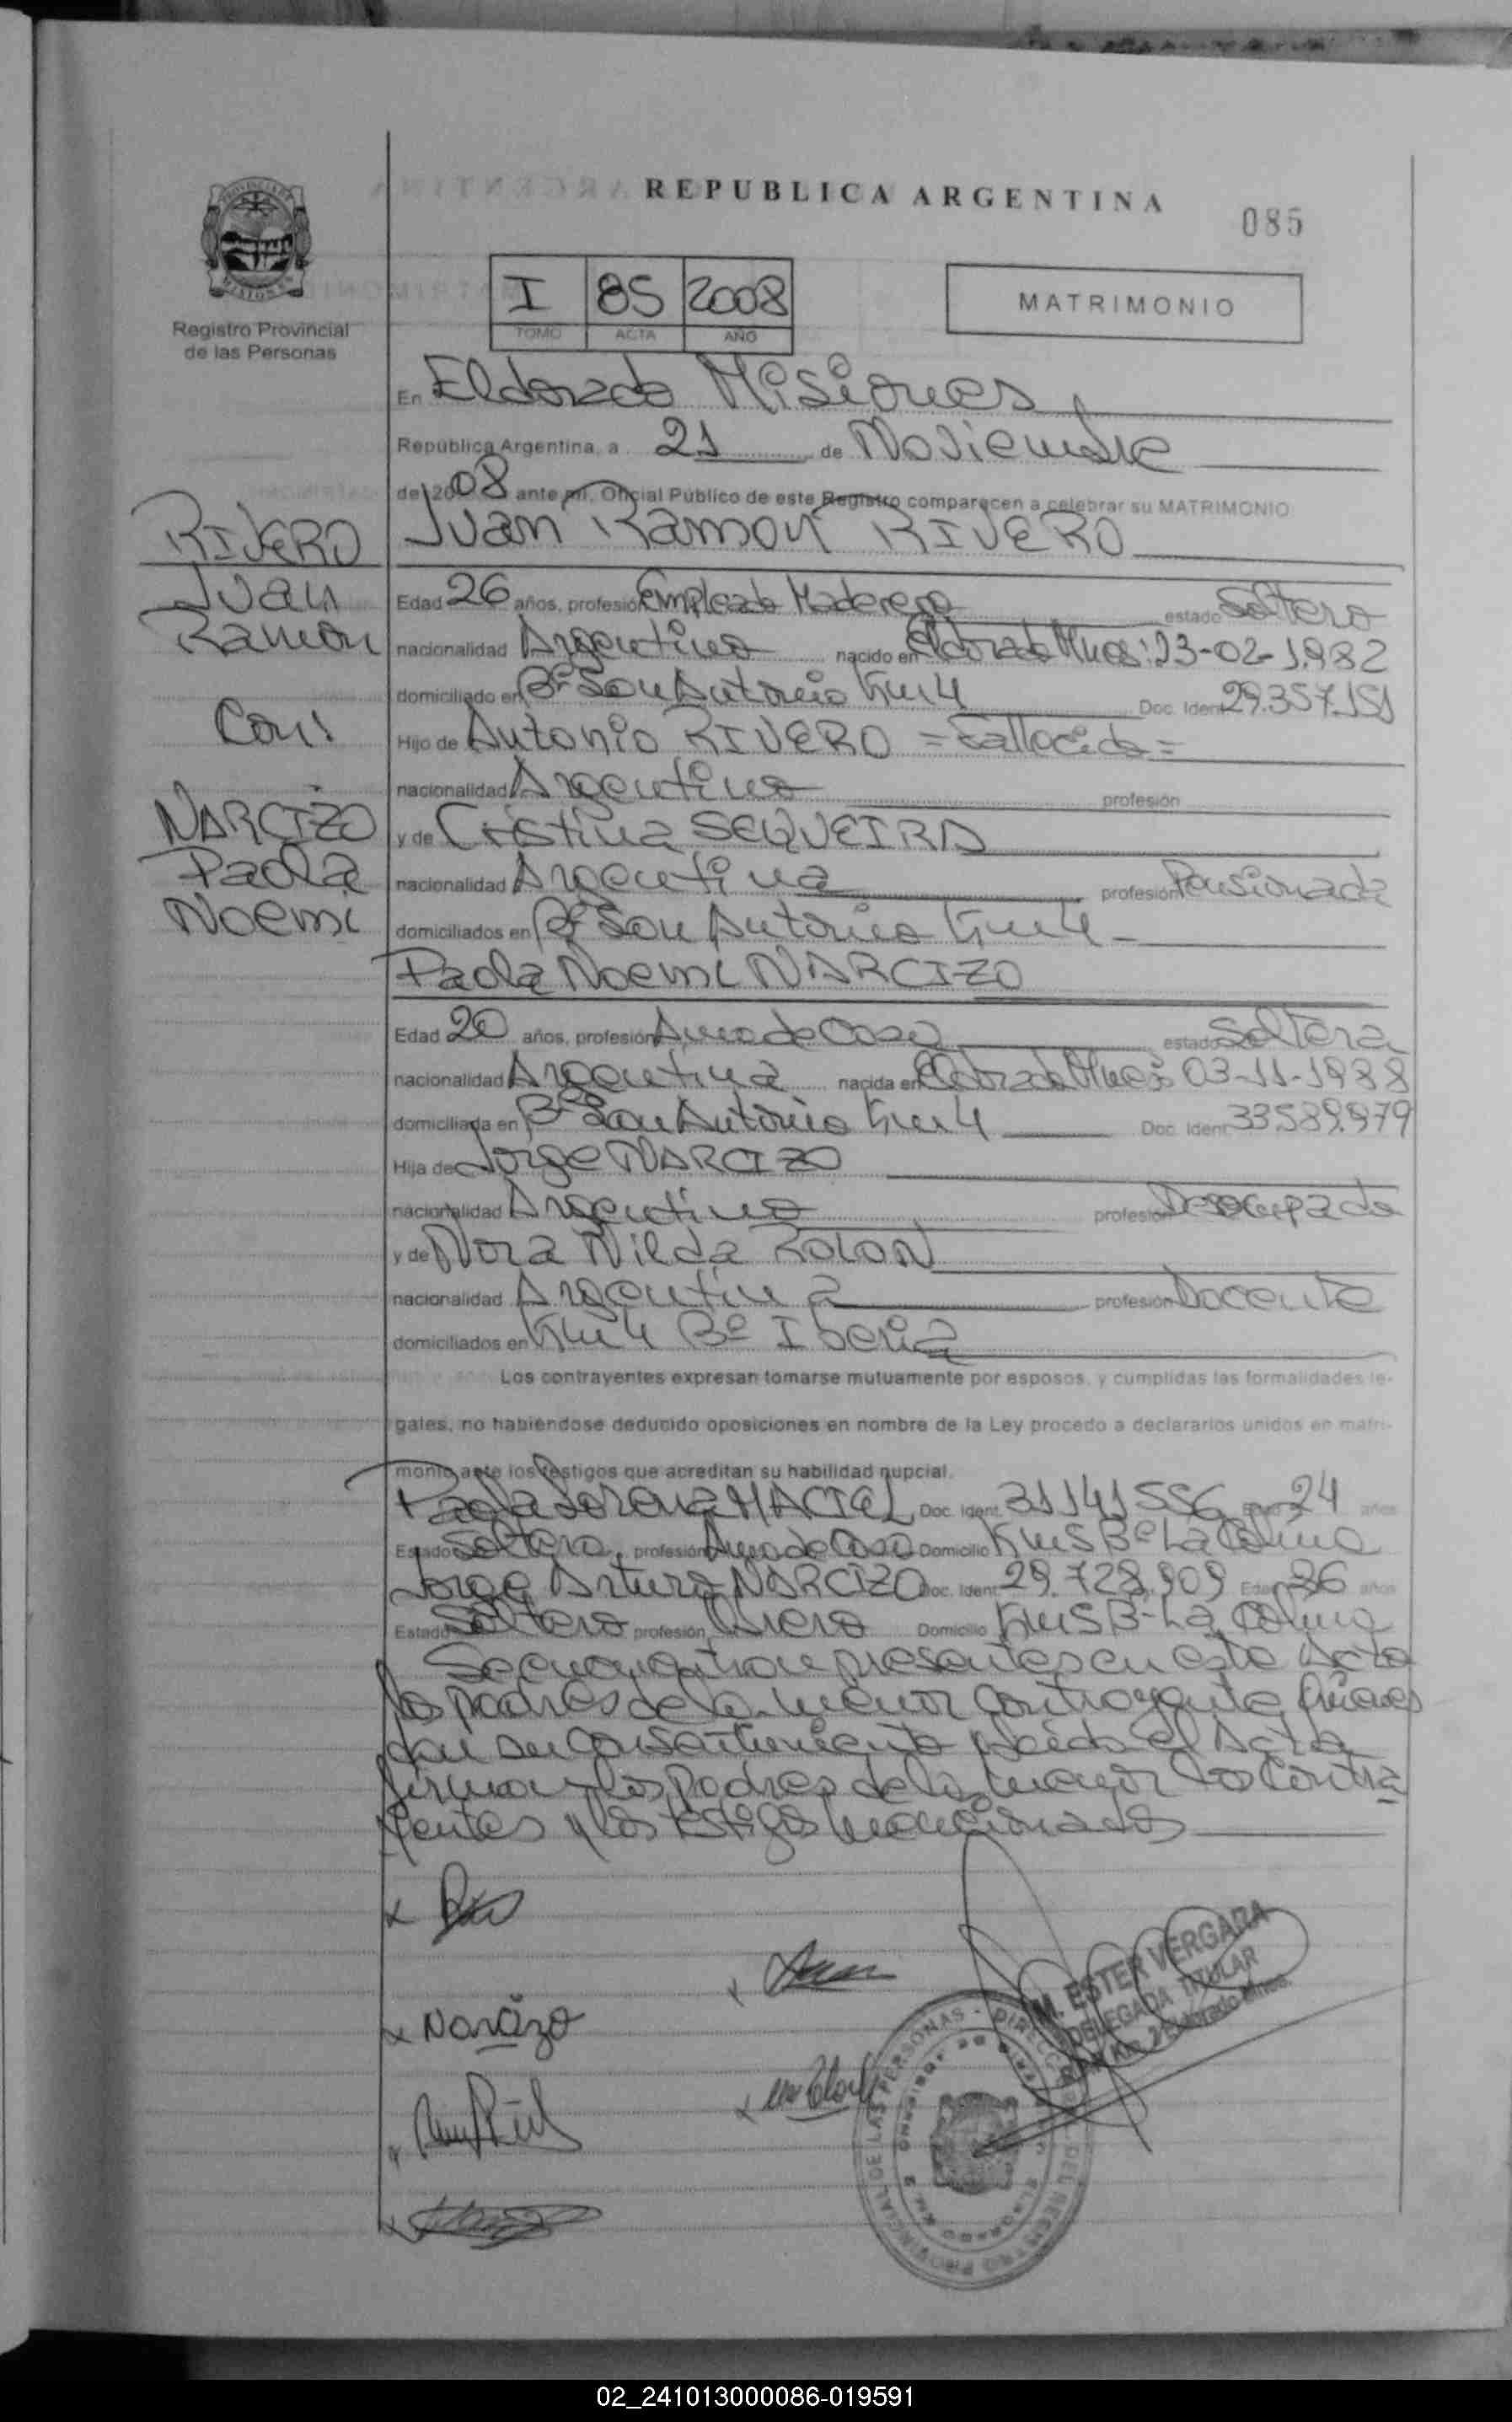 REPUBLICA ARGENTINA
085
I 85 2008
TOMO ACTA AÑO
MATRIMONIO
Registro Provincial
de las Personas
En Eldorado Misiones
República Argentina, a 21 de Noviembre
de 2008 ante mi, Oficial Público de este Registro comparecen a celebrar su MATRIMONIO
RIVERO
Juan
Ramon
Con:
NARCIZO
Paola
Noemi
Juan Ramon RIVERO
Edad 26 años, profesión Empleado Maderero estado Soltero
nacionalidad Argentino nacido en Eldorado Mnes: 23-02-1982
domiciliado en Bº San Antonio Km 4 Doc. Ident 29.357.151
Hijo de Antonio RIVERO = Fallecido =
nacionalidad Argentino profesión
y de Cristina SEQUEIRA
nacionalidad Argentina profesión Pensionada
domiciliados en Bº San Antonio Km 4
Paola Noemi NARCIZO
Edad 20 años, profesión Ama de Casa estado Soltera
nacionalidad Argentina nacida en Eldorado Mnes: 03-11-1988
domiciliada en Bº San Antonio Km 4 Doc. Ident 33.589.979
Hija de Jorge NARCIZO
nacionalidad Argentino profesión Desocupado
y de Nora Nilda ROLON
nacionalidad Argentina profesión Docente
domiciliados en Km 4 Bº Iberia
Los contrayentes expresan tomarse mutuamente por esposos, y cumplidas las formalidades le-
gales, no habiéndose deducido oposiciones en nombre de la Ley procedo a declararlos unidos en matri-
monio ante los testigos que acreditan su habilidad nupcial.
Paola Lorena MACIEL Doc. Ident. 31141556 Edad 24 años
Estado Soltera profesión Ama de Casa Domicilio Km 5 Bº La Colina
Jorge Arturo NARCIZO Doc. Ident. 29.728.909 Edad 26 años
Estado Soltero profesión Obrero Domicilio Km 5 Bº La Colina
Se encuentran presentes en este Acto
los padres de la menor contrayente quienes
dan su consentimiento leida el Acta
firman los padres de la menor los contra
yentes y los testigos mencionados
Narcizo
M. ESTER VERGARA
DELEGADA TITULAR
Km. 2 Eldorado Mnes.
02_241013000086-019591